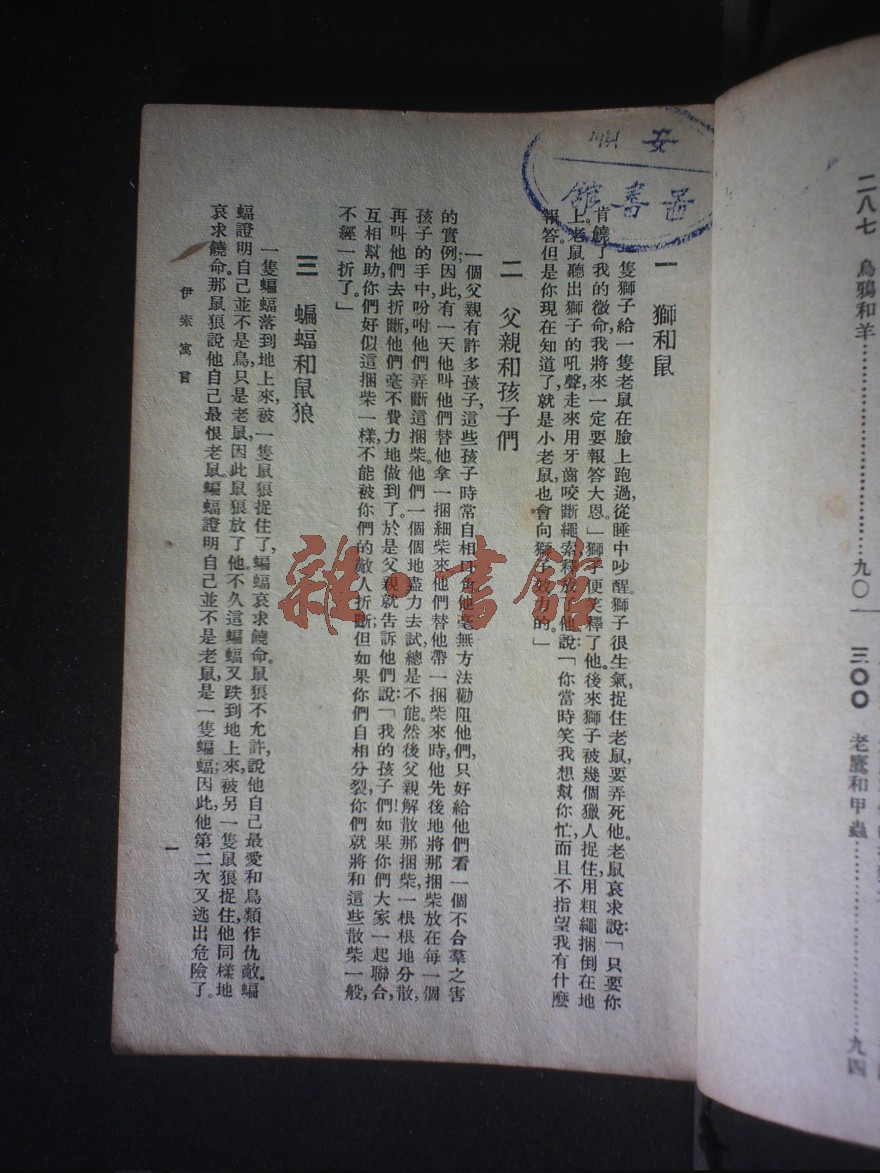 二八七　烏鴉和羊……………九〇
三〇〇　老鷹和甲蟲……………九四
安順
圖書館
一　獅和鼠
一隻獅子給一隻老鼠在臉上跑過,從睡中吵醒。獅子很生氣,捉住老鼠,要弄死他。老鼠哀求說:「只要你
肯饒了我的微命,我將來一定要報答大恩。」獅子便笑釋了他。後來獅子被幾個獵人捉住,用粗繩捆倒在地
上。老鼠聽出獅子的吼聲,走來用牙齒咬斷繩索,釋放了他,說:「你當時笑我想幫你忙,而且不指望我有什麼
報答。但是你現在知道了,就是小老鼠也會向獅子效力的。」
二　父親和孩子們
一個父親有許多孩子,這些孩子時常自相口角,他毫無方法勸阻他們,只好給他們看一個不合羣之害
的實例;因此,有一天他叫他們替他拿一捆細柴來。他們替他帶一捆柴來時,他先後地將那捆柴放在每一個
孩子的手中,吩咐他們弄斷這捆柴。他們一個個地盡力去試,總是不能。然後父親解散那捆柴,一根根地分散,
再叫他們去折斷,他們毫不費力地做到了。於是父親就告訴他們說:「我的孩子們!如果你們大家一起聯合,
互相幫助,你們好似這捆柴一樣,不能被你們的敵人折斷;但如果你們自相分裂,你們就將和這些散柴一般,
不經一折了。」
三　蝙蝠和鼠狼
一隻蝙蝠落到地上來,被一隻鼠狼捉住了,蝙蝠哀求饒命。鼠狼不允許,說他自己最愛和鳥類作仇敵。蝙
蝠證明自己並不是鳥,只是老鼠,因此鼠狼放了他。不久這蝙蝠又跌到地上來,被另一隻鼠狼捉住,他同樣地
哀求饒命。那鼠狼說他自己最恨老鼠。蝙蝠證明自己並不是老鼠,是一隻蝙蝠;因此,他第二次又逃出危險了。
伊索寓言
一
雜·書館